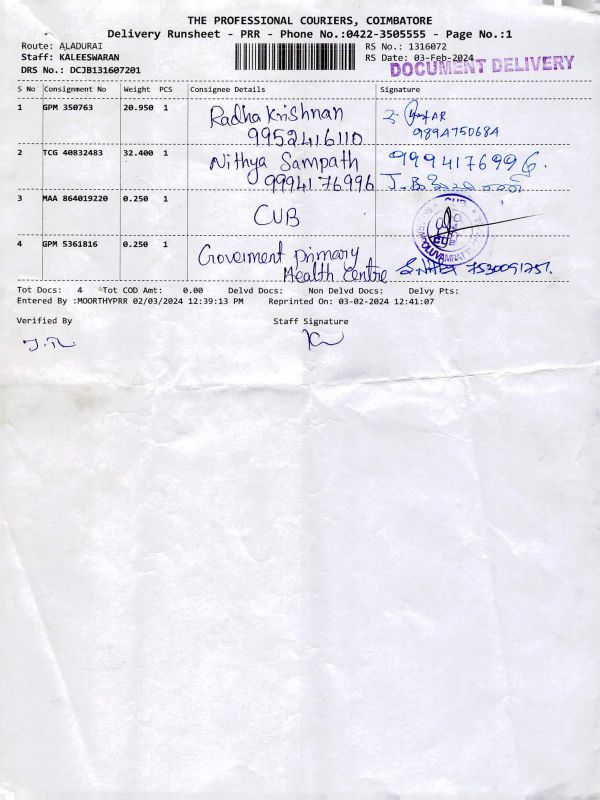 THE PROFESSIONAL COURIERS, COIMBATORE
Delivery Runsheet - PRR - Phone No.:0422-3505555 - Page No.:1
Route: ALADURAI
RS No.: 1316072
Staff: KALEESWARAN
RS Date: 03-Feb-2024
DRS No.: DCJB131607201
DOCUMENT DELIVERY
S No Consignment No Weight PCS Consignee Details Signature
1 GPM 350763 20.950 1 Radha Krishnan
9952416110 9894750684
2 TCG 40832483 32.400 1 Nithya Sampath 9994176996.
9994176996
3 MAA 864019220 0.250 1 CUB
CUB
4 GPM 5361816 0.250 1 Goverment primary
Health Centre 7530091751.
Tot Docs: 4 Tot COD Amt: 0.00 Delvd Docs: Non Delvd Docs: Delvy Pts:
Entered By :MOORTHYPRR 02/03/2024 12:39:13 PM Reprinted On: 03-02-2024 12:41:07
Verified By Staff Signature